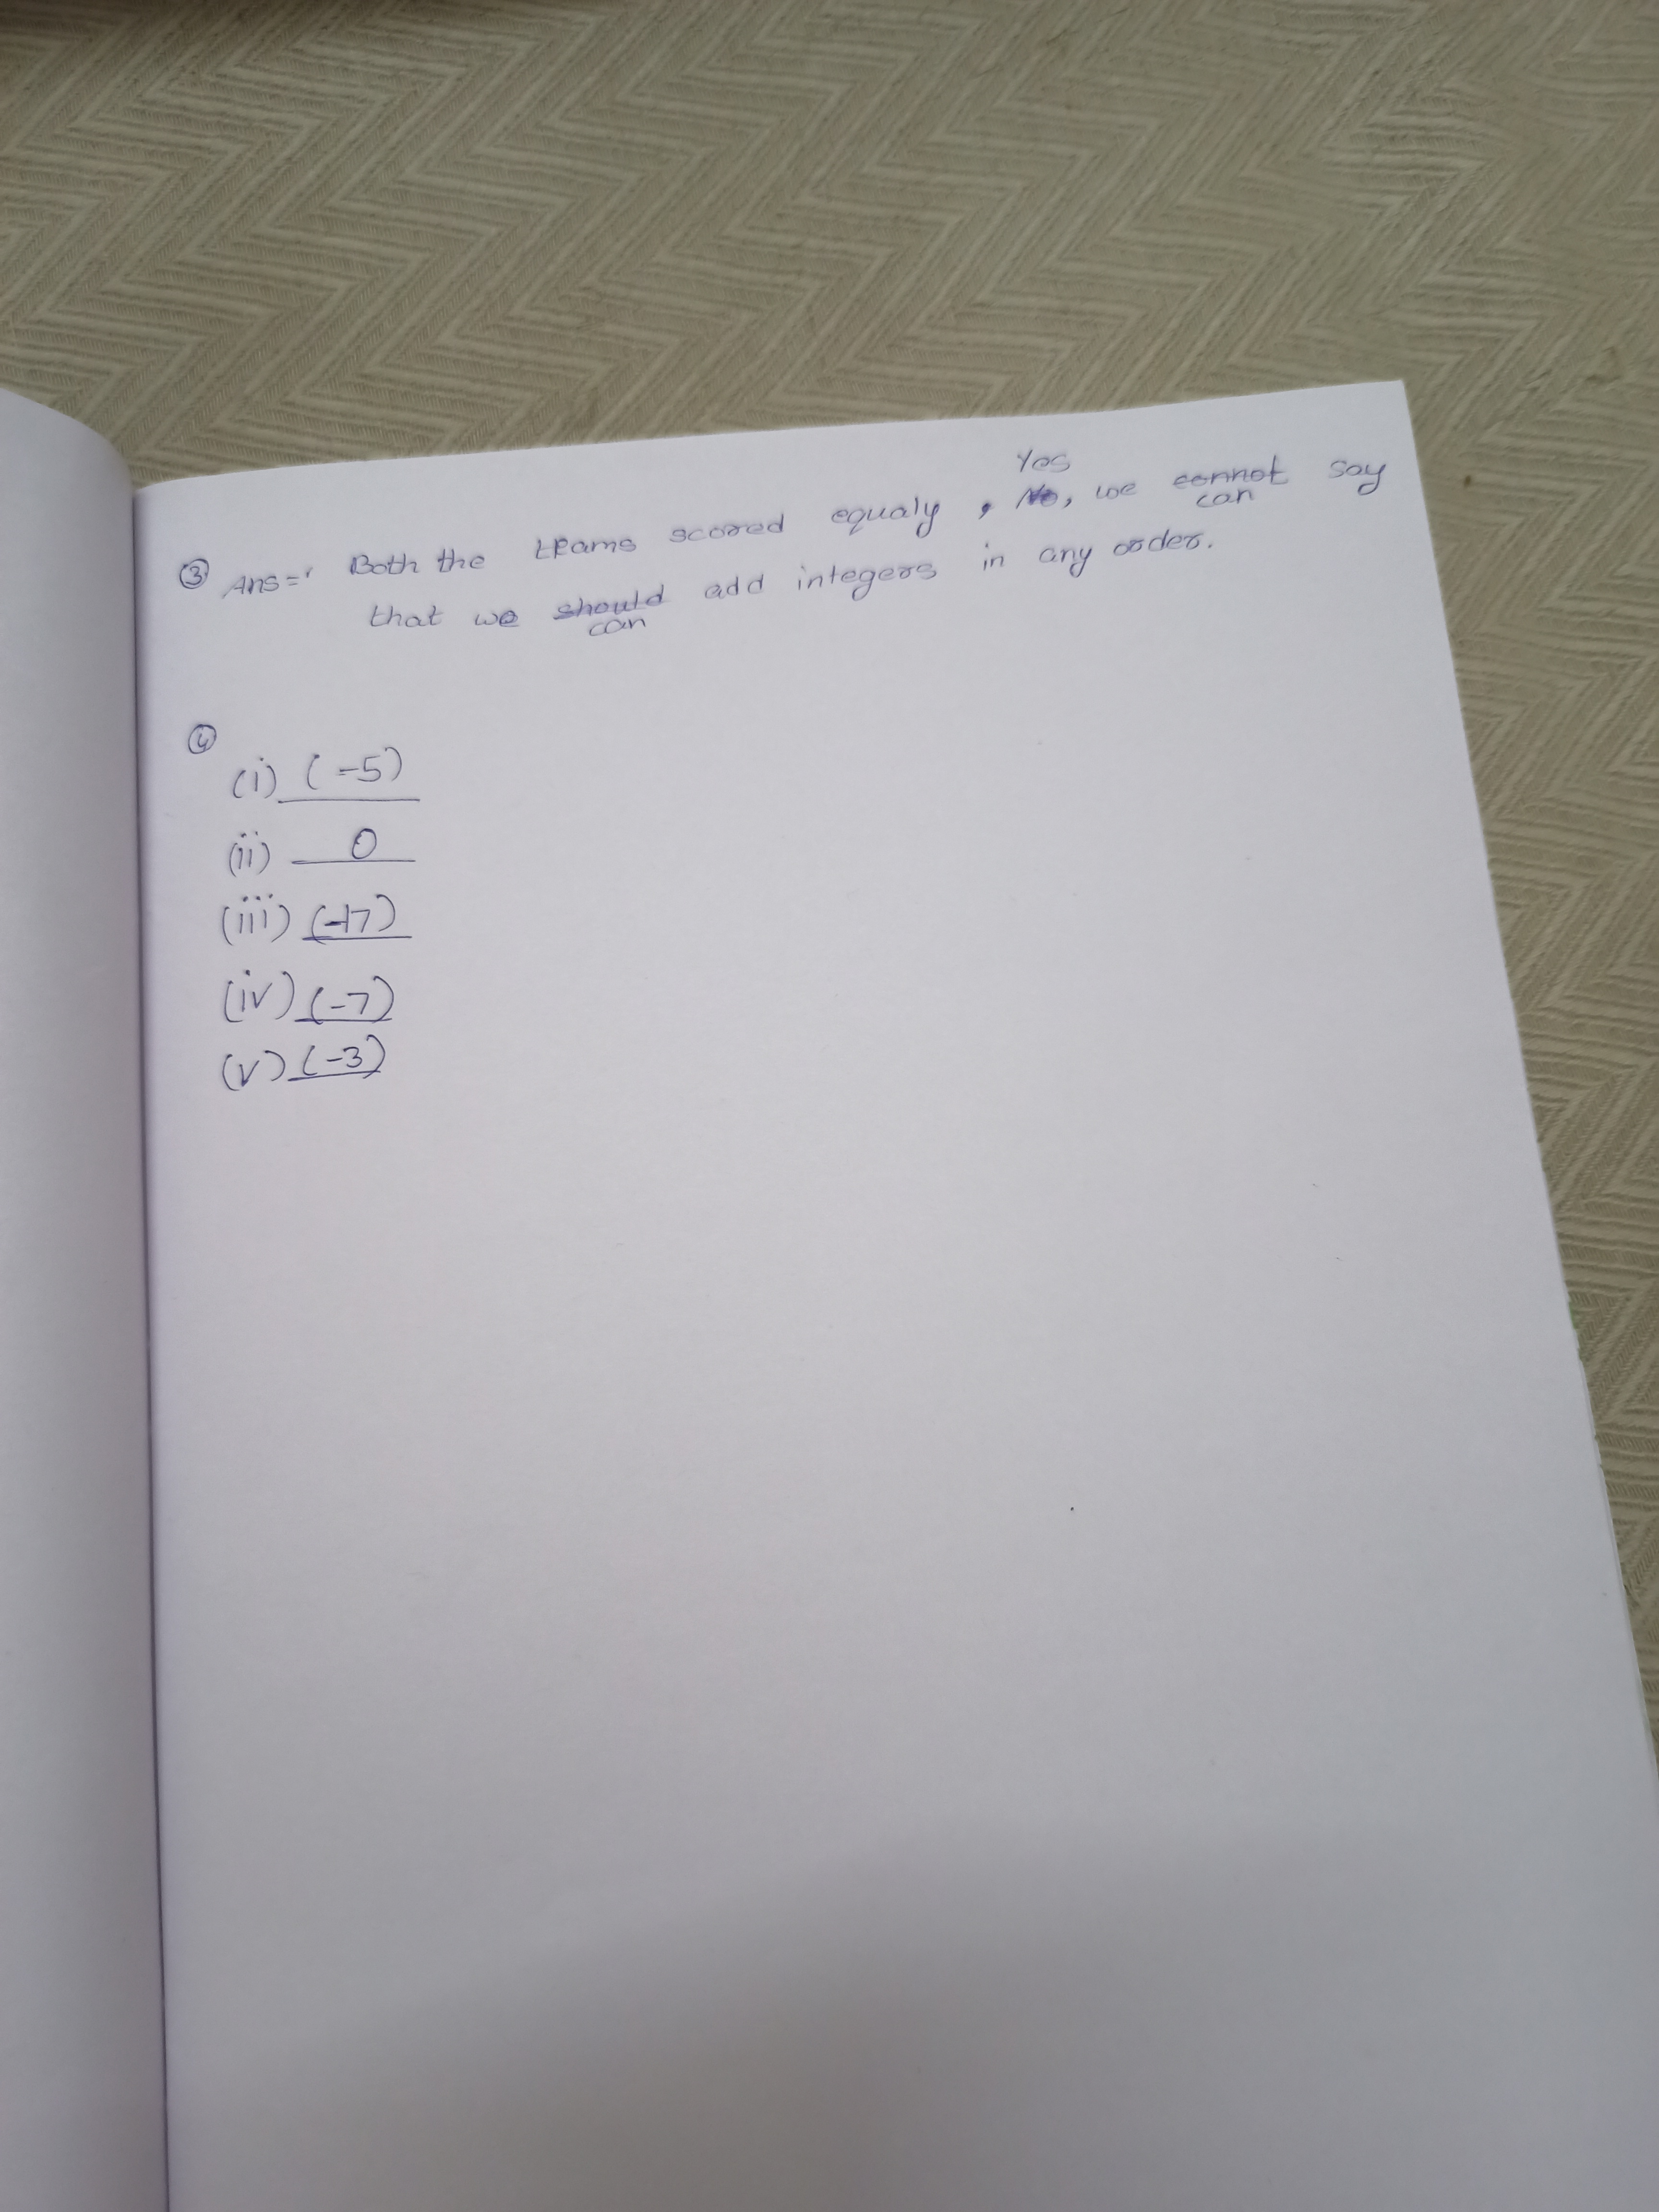 Yes
③ Ans=' Both the teams scored equaly, No, we cannot say
can
that we should add integers in any order.
can
④
(i) (-5)
(ii) 0
(iii) (-17)
(iv) (-7)
(v) (-3)